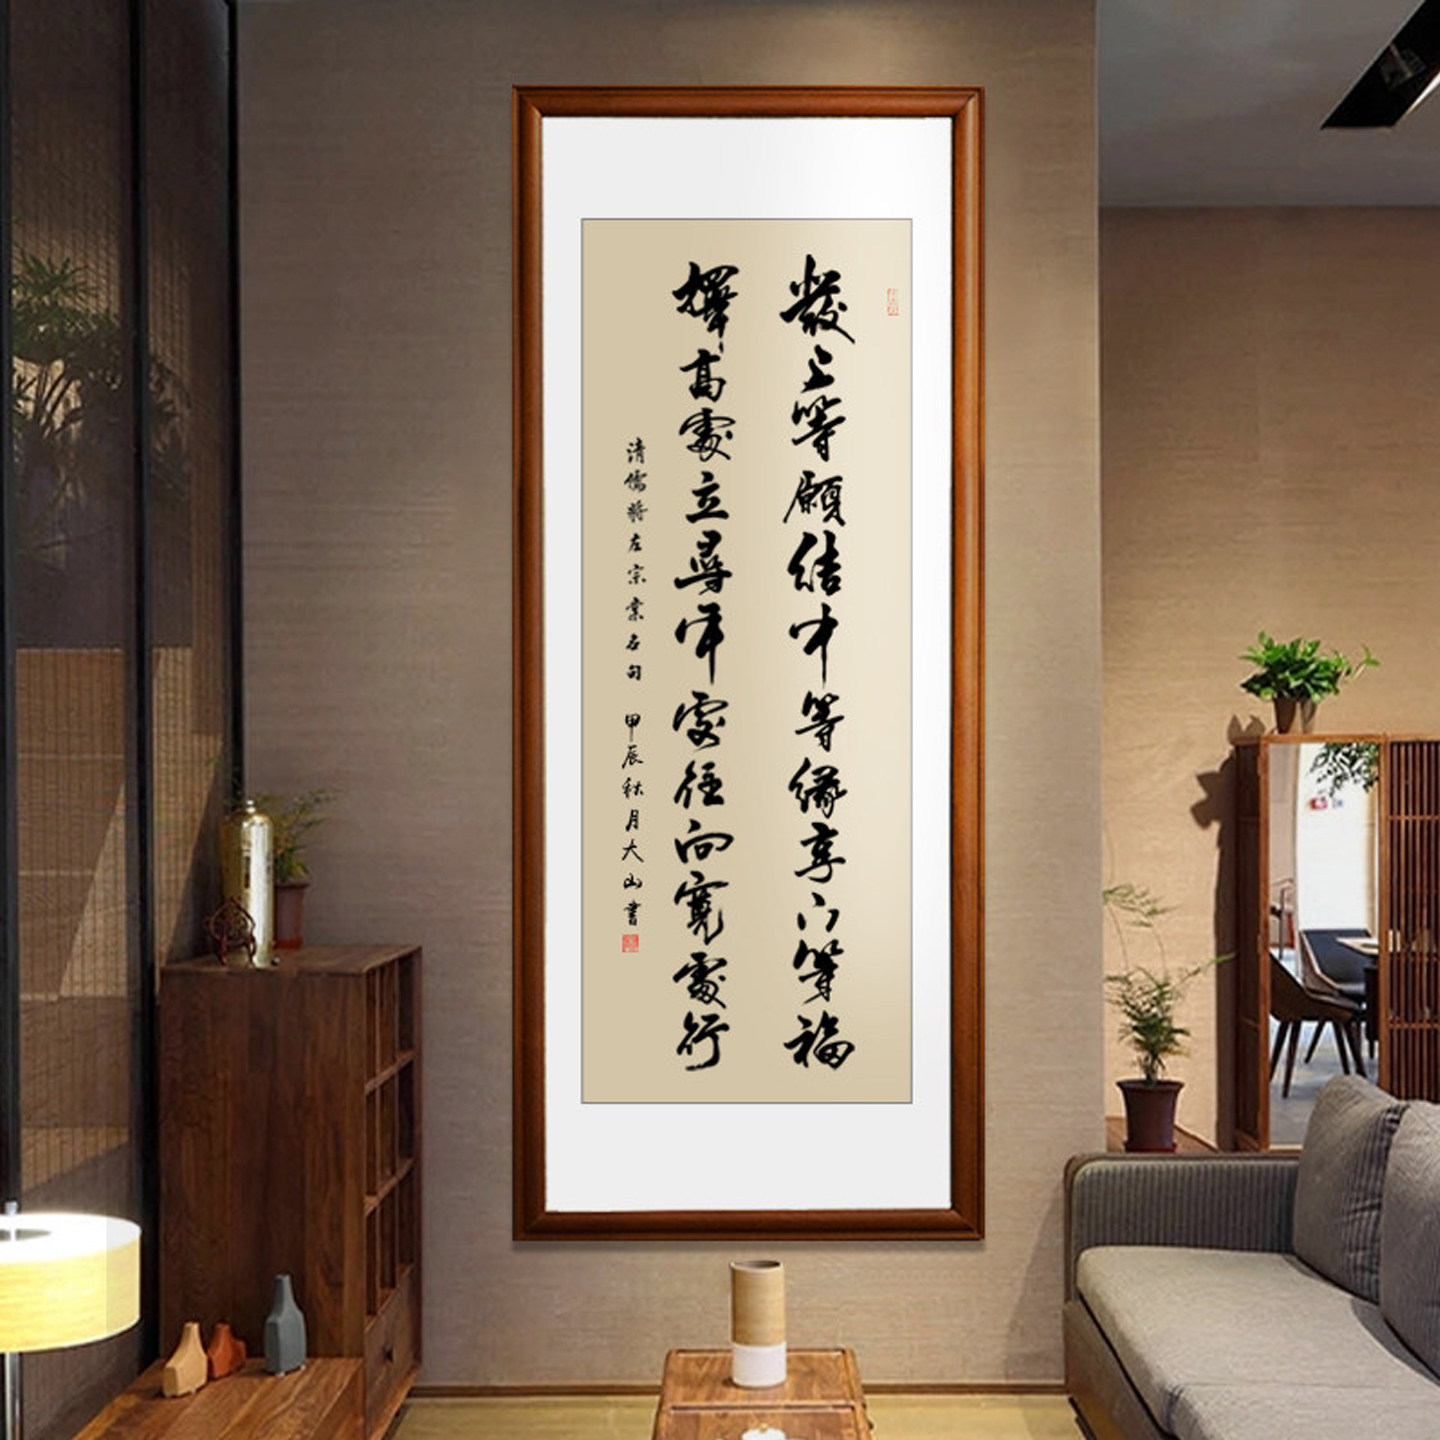 發上等願結中等緣享下等福
擇高處立尋平處住向寬處行
清儒將左宗棠名句 甲辰秋月大山書